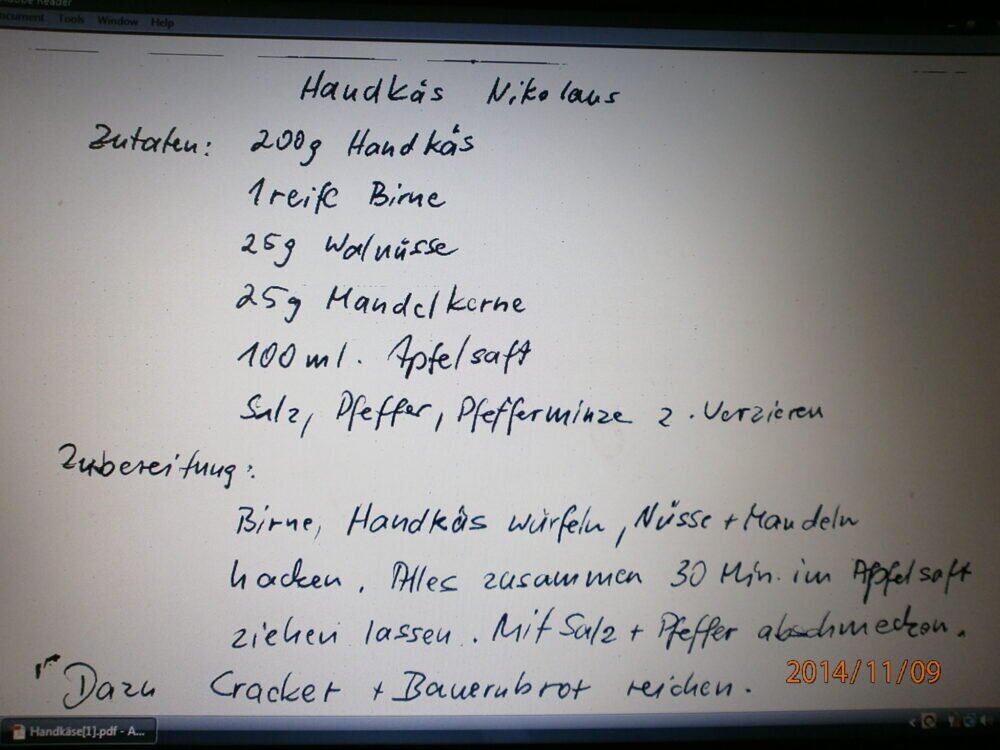 Adobe Reader
Document Tools Window Help
Handkäs Nikolaus
Zutaten: 200g Handkäs
1 reife Birne
25g Walnüsse
25g Mandelkerne
100 ml. Apfelsaft
Salz, Pfeffer, Pfefferminze z. Verzieren
Zubereitung:
Birne, Handkäs würfeln, Nüsse + Mandeln
hacken. Alles zusammen 30 Min. im Apfelsaft
ziehen lassen. Mit Salz + Pfeffer abschmecken.
Dazu Cracker + Bauernbrot reichen.
2014/11/09
Handkäse[1].pdf - A...